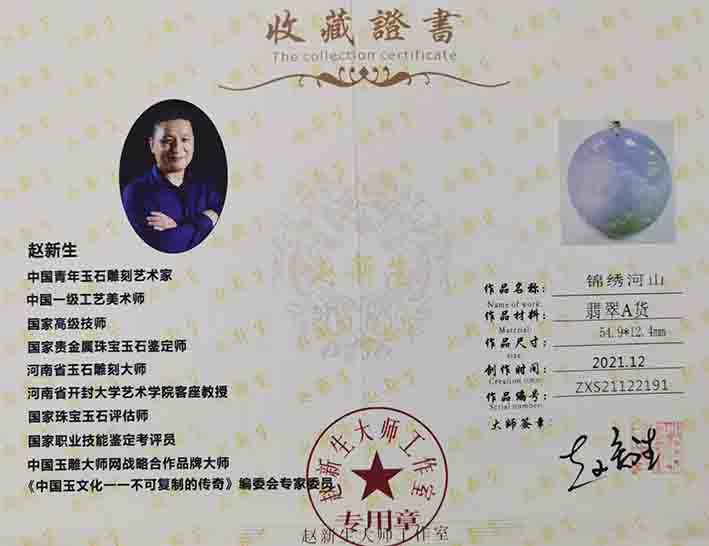 收藏證書
The collection certificate
赵新生
中国青年玉石雕刻艺术家
中国一级工艺美术师
国家高级技师
国家贵金属珠宝玉石鉴定师
河南省玉石雕刻大师
河南省开封大学艺术学院客座教授
国家珠宝玉石评估师
国家职业技能鉴定考评员
中国玉雕大师网战略合作品牌大师
《中国玉文化一一不可复制的传奇》编委会专家委员
赵新生
作品名称: 锦绣河山
Name of work:
作品材料: 翡翠A货
Material:
作品尺寸: 54.9*12.4mm
size:
创作时间: 2021.12
Creation time:
作品编号: ZXS21122191
Serial number:
大师签章:
赵新生
赵新生大师工作室
专用章
赵新生大师工作室